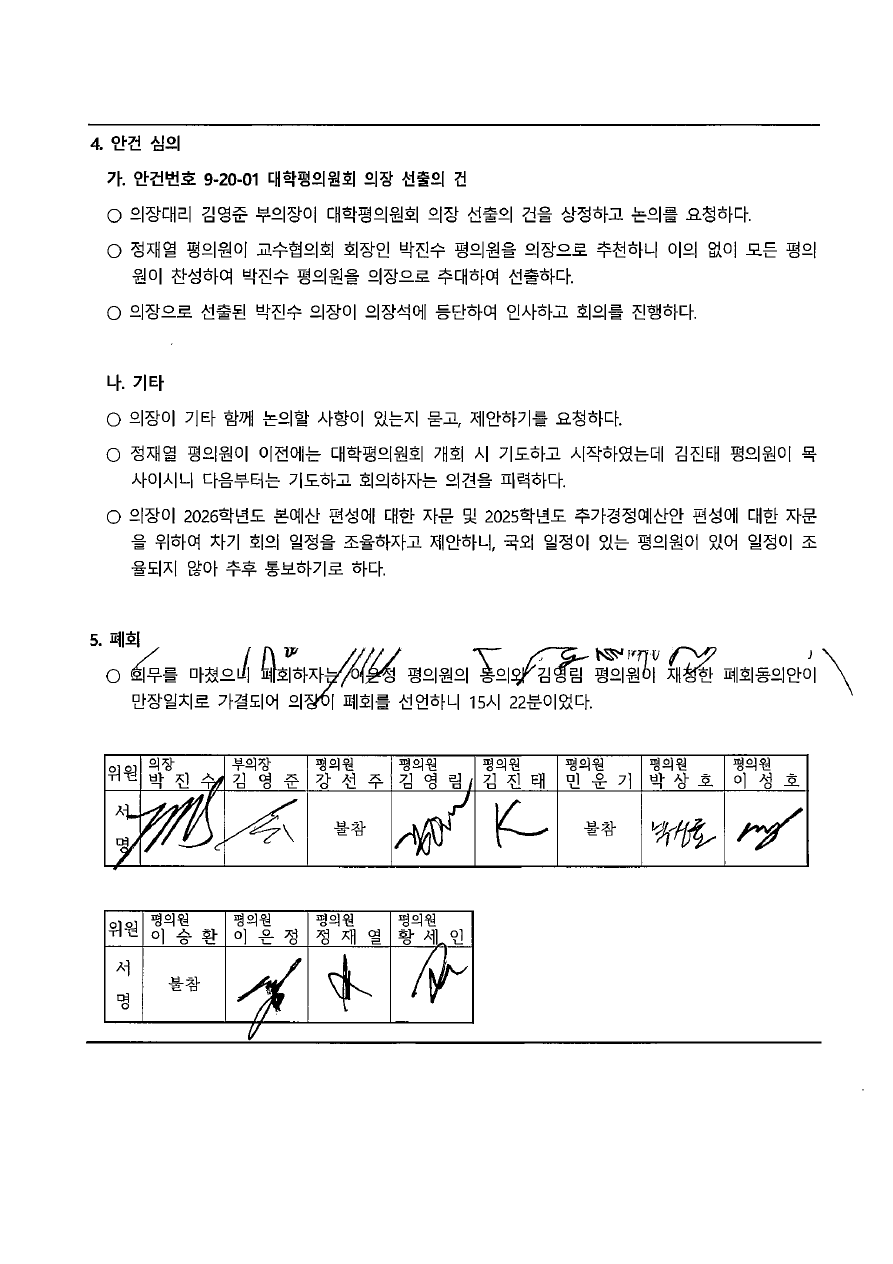 4. 안건 심의
가. 안건번호 9-20-01 대학평의원회 의장 선출의 건
○ 의장대리 김영준 부의장이 대학평의원회 의장 선출의 건을 상정하고 논의를 요청하다.
○ 정재열 평의원이 교수협의회 회장인 박진수 평의원을 의장으로 추천하니 이의 없이 모든 평의
원이 찬성하여 박진수 평의원을 의장으로 추대하여 선출하다.
○ 의장으로 선출된 박진수 의장이 의장석에 등단하여 인사하고 회의를 진행하다.
나. 기타
○ 의장이 기타 함께 논의할 사항이 있는지 묻고, 제안하기를 요청하다.
○ 정재열 평의원이 이전에는 대학평의원회 개회 시 기도하고 시작하였는데 김진태 평의원이 목
사이시니 다음부터는 기도하고 회의하자는 의견을 피력하다.
○ 의장이 2026학년도 본예산 편성에 대한 자문 및 2025학년도 추가경정예산안 편성에 대한 자문
을 위하여 차기 회의 일정을 조율하자고 제안하니, 국외 일정이 있는 평의원이 있어 일정이 조
율되지 않아 추후 통보하기로 하다.
5. 폐회
○ 회무를 마쳤으니 폐회하자는 이은정 평의원의 동의와 김영림 평의원이 재청한 폐회동의안이
만장일치로 가결되어 의장이 폐회를 선언하니 15시 22분이었다.
위원 의장 부의장 평의원 평의원 평의원 평의원 평의원 평의원
박진수 김영준 강선주 김영림 김진태 민운기 박상호 이성호
서 불참 K 불참 박상호
명
위원 평의원 평의원 평의원 평의원
이승환 이은정 정재열 황세인
서 불참
명